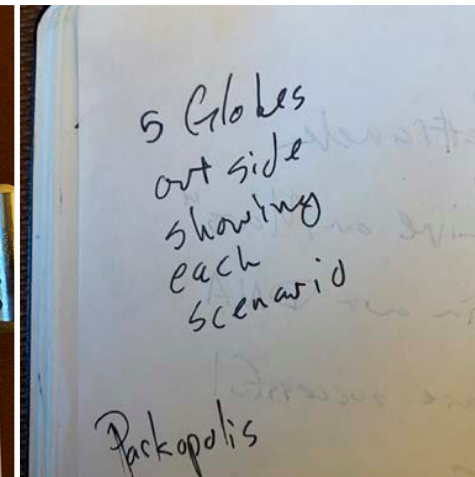 5 Globes
out side
showing
each
scenario
Parkopolis